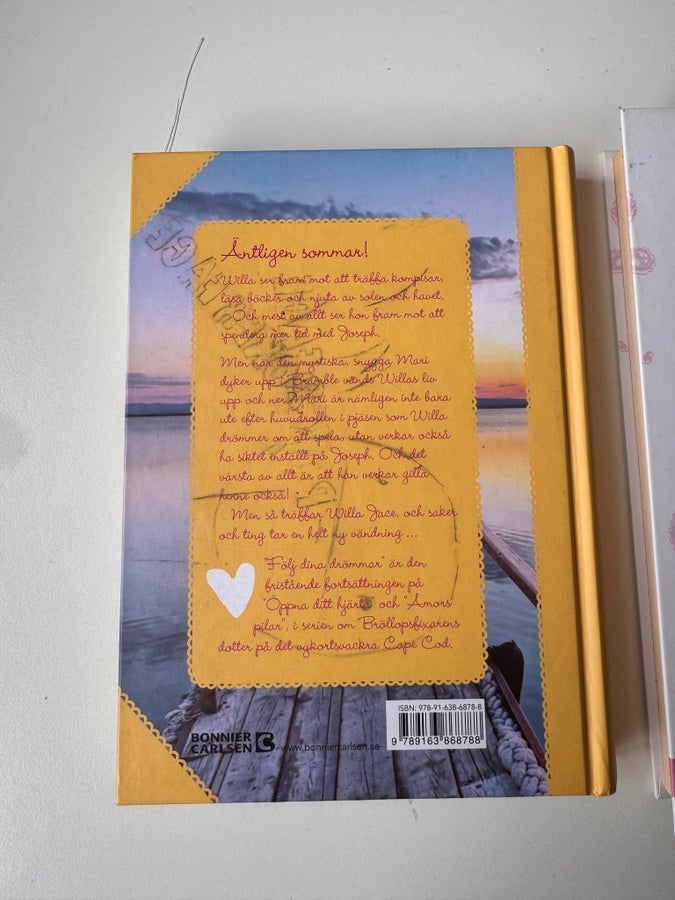 Äntligen sommar!
Willa ser fram mot att träffa kompisar,
läsa böcker och njuta av solen och havet.
Och mest av allt ser hon fram mot att
spendera mer tid med Joseph.
Men när den mystiska, snygga Mari
dyker upp i Bramble vänds Willas liv
upp och ner. Mari är nämligen inte bara
ute efter huvudrollen i pjäsen som Willa
drömmer om att spela, utan verkar också
ha siktet inställt på Joseph. Och det
värsta av allt är att han verkar gilla
henne också!
Men så träffar Willa Jace, och saker
och ting tar en helt ny vändning ...
"Följ dina drömmar" är den
fristående fortsättningen på
"Öppna ditt hjärta" och "Amors
pilar", i serien om Bröllopsfixarens
dotter på det vykortsvackra Cape Cod.
BONNIER
CARLSEN
www.bonniercarlsen.se
ISBN: 978-91-638-6878-8
9 789163 868788